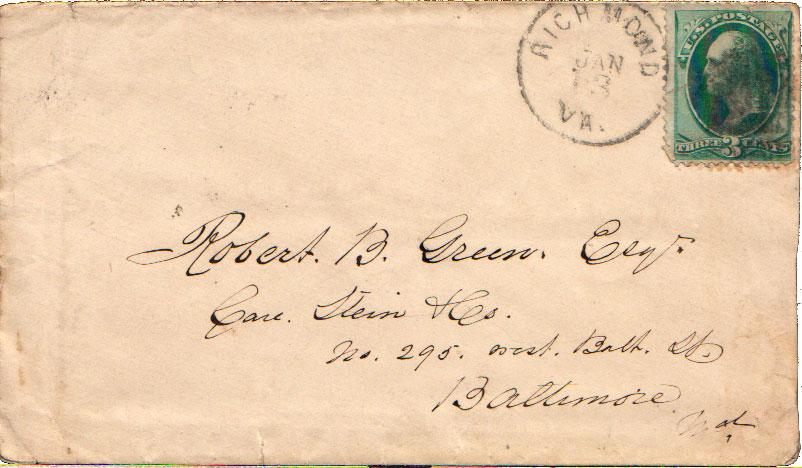 RICHMOND
JAN
VA.
U.S. POSTAGE
THREE 3 CENTS
Robert. B. Green. Esqr
Care. Stein & Co.
No. 295. west. Balt. St.
Baltimore
Md.